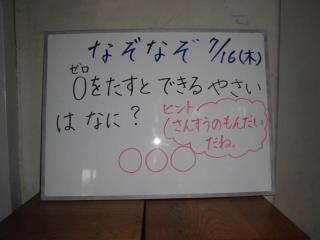 なぞなぞ 7/16(木)
ゼロ
0をたすと できる やさい
は なに?
ヒント
(さんすうのもんだい
だね.
○○○